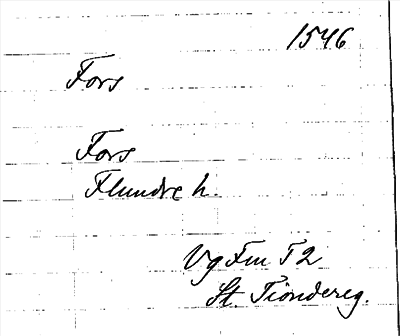 1546
Fors
Fors
Flundre h.
Vg Fm T 2
St. Tiondereg.